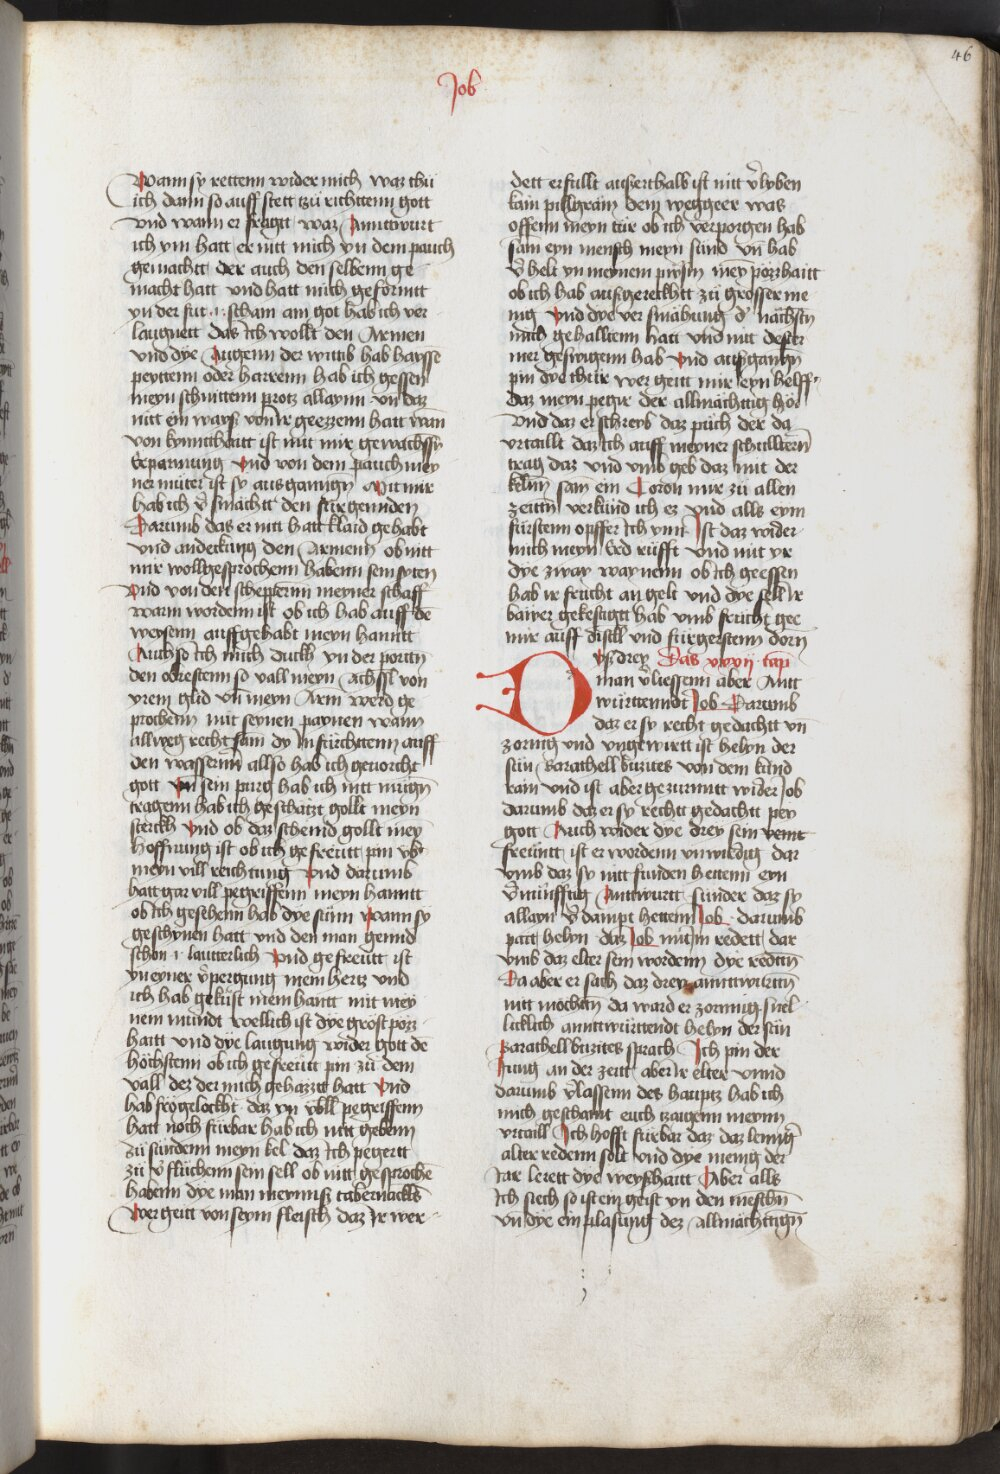 46
Job
Wann sy rettenn wider mich waz thü
ich dann so auff stett tzü richttenn gott
vnd wann er fragtt waz Anttwurt
ich ym hatt er nitt mich yn dem pauch
gemachtt der auch den selbenn ge
macht hatt vnd hatt mich geformtt
yn der fut .i. scham am got hab ich ver
laugnett das Ich wollt den Armen
vnd dye Augenn der wittib hab hayssē
peyttenn oder harrenn hab ich gessen
meyn schnittenn protz allaynn vn̄ daz
nitt ein wayß von Ir geezzenn hatt wan
von kyntthaitt ist mit mir gewachssn̄
Erparmung vnd von dem pauch mey
ner muter ist sy ausgangn̄ Mit mir
hab ich v̄smächtt den für genndē
Darumb das er nitt hatt klaid gehabt
vnd andeckung den Armenn ob nitt
mir wollgesprochenn habenn sein sytēn
vnd von den scheppternn meyner schaff
warm wordenn ist ob ich hab auff dē
weysenn auffgehabt meyn hanntt
Auch so Ich mich duckh yn der porttn̄
den obrestenn so vall meyn Achssl von
yrem glid vn̄ meyn Arm werd ge
prochenn mit seynen paynen wann
allweg recht sam dy Infürchttenn auff
den wassernn allso hab ich geuorcht
gott vn̄ sein purg hab ich nitt mügn̄
tragenn hab ich geschätzt gollt meyn
sterckh vnd ob daz scheinid gollt mey
hoffnung ist ob ich gefreütt pin vb̄
meyn vill reichtung vnd darumb
hatt gar vill pegriffenn meyn hanntt
ob Ich gesehenn hab dye sünn wann sy
geschynen hatt vnd den man gennd
schon .i. lautterlich vnd gefreütt ist
yn eyner v̄pergung mein hertz vnd
ich hab geküst mein hantt mit mey
nem mündt wellich ist dye gröst pözz
haitt vnd dye laugung wider gott dē
höchstenn ob ich gefreütt pin zü dem
vall dez der mich gehazztt hatt vnd
hab frögelockht daz yn v̄bll pegriffenn
hatt noch fürbar hab ich nitt gebenn
zü sündenn meyn kel daz Ich pegertt
zü v̄flüchenn sein sell ob nitt gesprochē
habenn dye man meyniß tabernackls
wer geitt von seym fleisch daz Ir wer
dett erfüllt ausserthalb ist nitt v̄lyben
kain pillgram dem weggeer was
offenn meyn tür ob ich verporgen hab
sam eyn mensch meyn sünd vn̄ hab
v̄helt yn meynem püsm mey pözzhaitt
ob ich hab außgereckhtt zü grosser me
nig vnd dye ver smähung d' nächstn̄
mich gehalltenn hatt vnd nit dester
mer geswigenn hab vnd außgangn̄
pin dye thür wer geitt mir eyn helff
daz meyn peger der allmächttig hör
vnd daz er schreyb daz püch der da
vrtaillt daz Ich auff meyner schulltern̄
trag daz vnd vmb geb daz mit der
kelnn sam ein Coron mir zü allen
zeittn̄ verkünd ich ez vnd alls eym
fürstenn opffer Ich ym Ist daz wider
mich meyn Erd rüfft vnd mit yr
dye zway waynenn ob Ich geessen
hab ir frücht an gelt vnd dye sell Ir
bawer gekestigtt hab vmb frücht gee
mir auff distl vnd für gerstenn dorn
Dyß drey Das xxxij cap̄
man v̄liessenn aber Antt
württenndt Job Darumb
daz er sy recht gedachtt vn̄
zornig vnd vngewirtt ist helyn der
sün Barathell buzites von dem künd
ram vnd ist aber gezurnntt wider Job
darumb daz er sy rechtt gedachtt pey
gott Auch wider dye drey sein
freüntt ist er wordenn vnwirdig dar
vmb daz sy nitt funden hettenn eyn
v̄nünfftig Anttwurtt sunder daz sy
allayn v̄dampt hettenn Job darumb
patt helyn daz Job mit Im redett dar
vmb daz elter sein wordenn dye redttn̄
Da aber er sach daz drey anttwürttn̄
nitt möchttn̄ da ward er zornnig snel
licklich anttwürttendt helyn der sün
Barathell buzites sprach Ich pin der
Jung an der zeitt aber Ir elter vnnd
darumb v̄lassenn des hauptz hab ich
mich geschamt euch tzaigenn meynn
vrtaill Ich hofft fürbar daz daz lennig
alter redenn solt vnd dye menig der
Iar lerett dye weyßhaitt Aber alls
Ich siech so ist ein geist yn den meschn̄
vn̄ dye einplasung dez Allmächttign̄